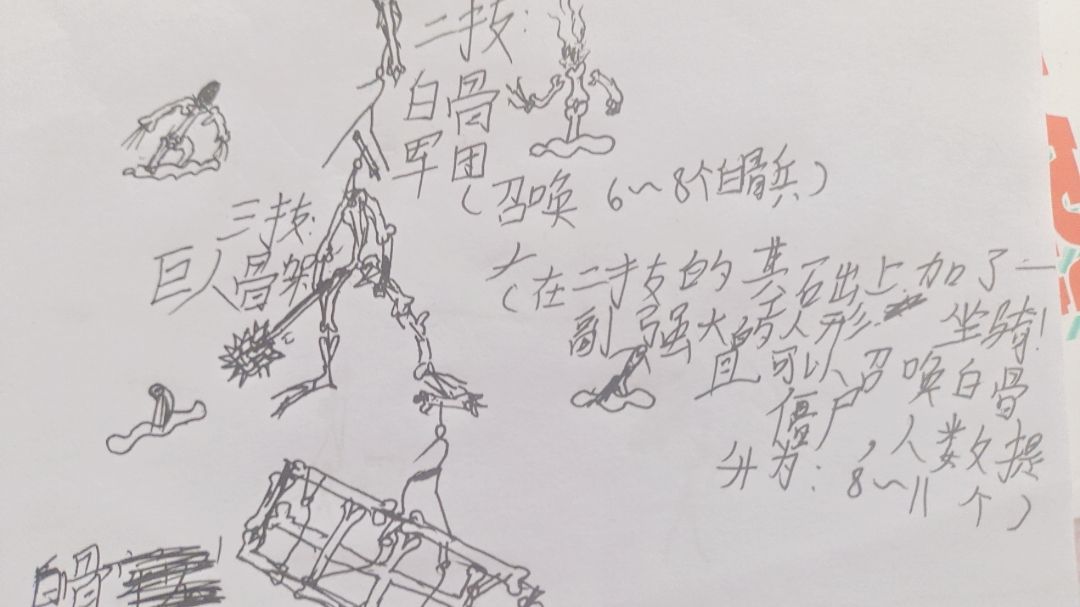 二技:
白骨
军团
(召唤 6~8个白骨兵)
三技:
巨人骨架
(在二技的基石出上加了一
副强大的人形 坐骑!
且可以召唤白骨
僵尸,人数提
升为:8~11个)
白骨